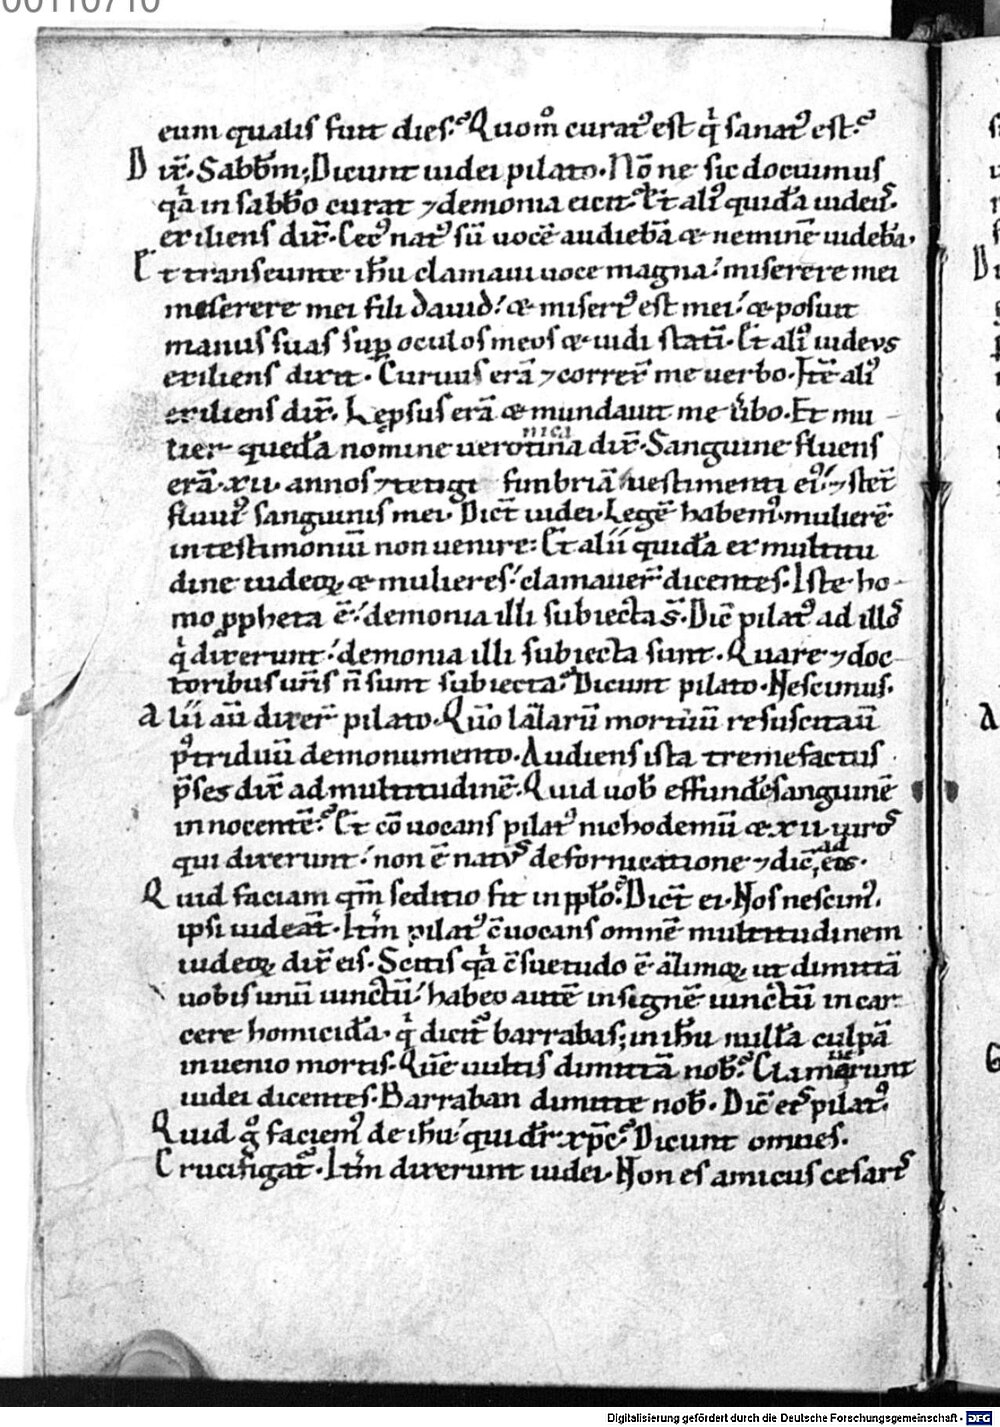 eum qualis fuit dies. Quom̄ curatꝰ est qͥ sanatꝰ est.
Dix̄. Sabb̄m; Dicunt iudei pilato. Nōne sic docuimus
qͥa in sabb̄o curat ⁊ demonia eicit. Et aliꝰ quidā iudeuſ.
exiliens dix̄. Cecꝰ natꝰ sū uocē audiebā & neminē uidebā.
Et transeunte ih̄u clamaui uoce magna. miserere mei
meserere mei fili dauid. & misertꝰ est mei. & posuit
manus suas suꝑ oculos meos & uidi statī. Et aliꝰ iudeus
exiliens dixit. Curuus erā ⁊ correx̄ me uerbo. Itē aliꝰ
exiliens dix̄. Lepsus erā & mundauit me ūbo. Et mu
lier quedā nomine verotina dix̄. Sanguine fluens
nica
erā. xii. annos ⁊ tetigi fimbriā uestimenti eiꝰ. ⁊ stet̄
fluuꝰ sanguinis mei. Dict̄ iudei. Legē habemꝰ mulierē
in testimoniū non uenire. Et alii quidā ex multitu
dine iudeoꝝ & mulieres. clamauer̄ dicentes. Iste ho-
mo ꝓpheta ē. demonia illi subiecta s̄. Dic̄ pilatꝰ ad illoſ
qͥ dixerunt. demonia illi subiecta sunt. Quare ⁊ doc-
toribus ur̄is n̄ sunt subiecta. Dicunt pilato. Nescimus.
Alii aū dixer̄ pilato. Qm̄o lazarū mortuū resuscitauī
pꝰ triduū de monumento. Audiens ista tremefactus
p̄ses dix̄ ad multitudinē. Quid uob̄ effundere sanguinē
innocentē. Et cōuocans pilatꝰ nichodemū & xii uiroſ
qui dixerunt. non ē natuſ de fornicatione ⁊ dic̄ eis.
ad
Quid faciam qm̄ seditio fit in pplo. Dict̄ ei. Nos nescimꝰ.
ipsi uideāt. Itm̄ pilatꝰ cōuocans omnē multitudinem
iudeoꝝ dix̄ eis. Scitis qͥa c̄suetudo ē azimoꝝ ut dimittā
uobis unū uinctū. habeo autē insignē uinctū in car
cere homicidā. qͥ dicitꝰ barrabas; in ih̄u nullā culpā
inuenio mortis. Quē uultis dimittā uob̄. Clamauerunt
iudei dicentes. Barraban dimitte nob̄. Dic̄ eiſ pilatꝰ.
Quid gͦ faciemꝰ de ih̄u. qui dr̄ xp̄c. Dicunt omnes.
Crucifigatꝰ. Itm̄ dixerunt iudei. Non es amicus cesariſ
Digitalisierung gefördert durch die Deutsche Forschungsgemeinschaft - DFG